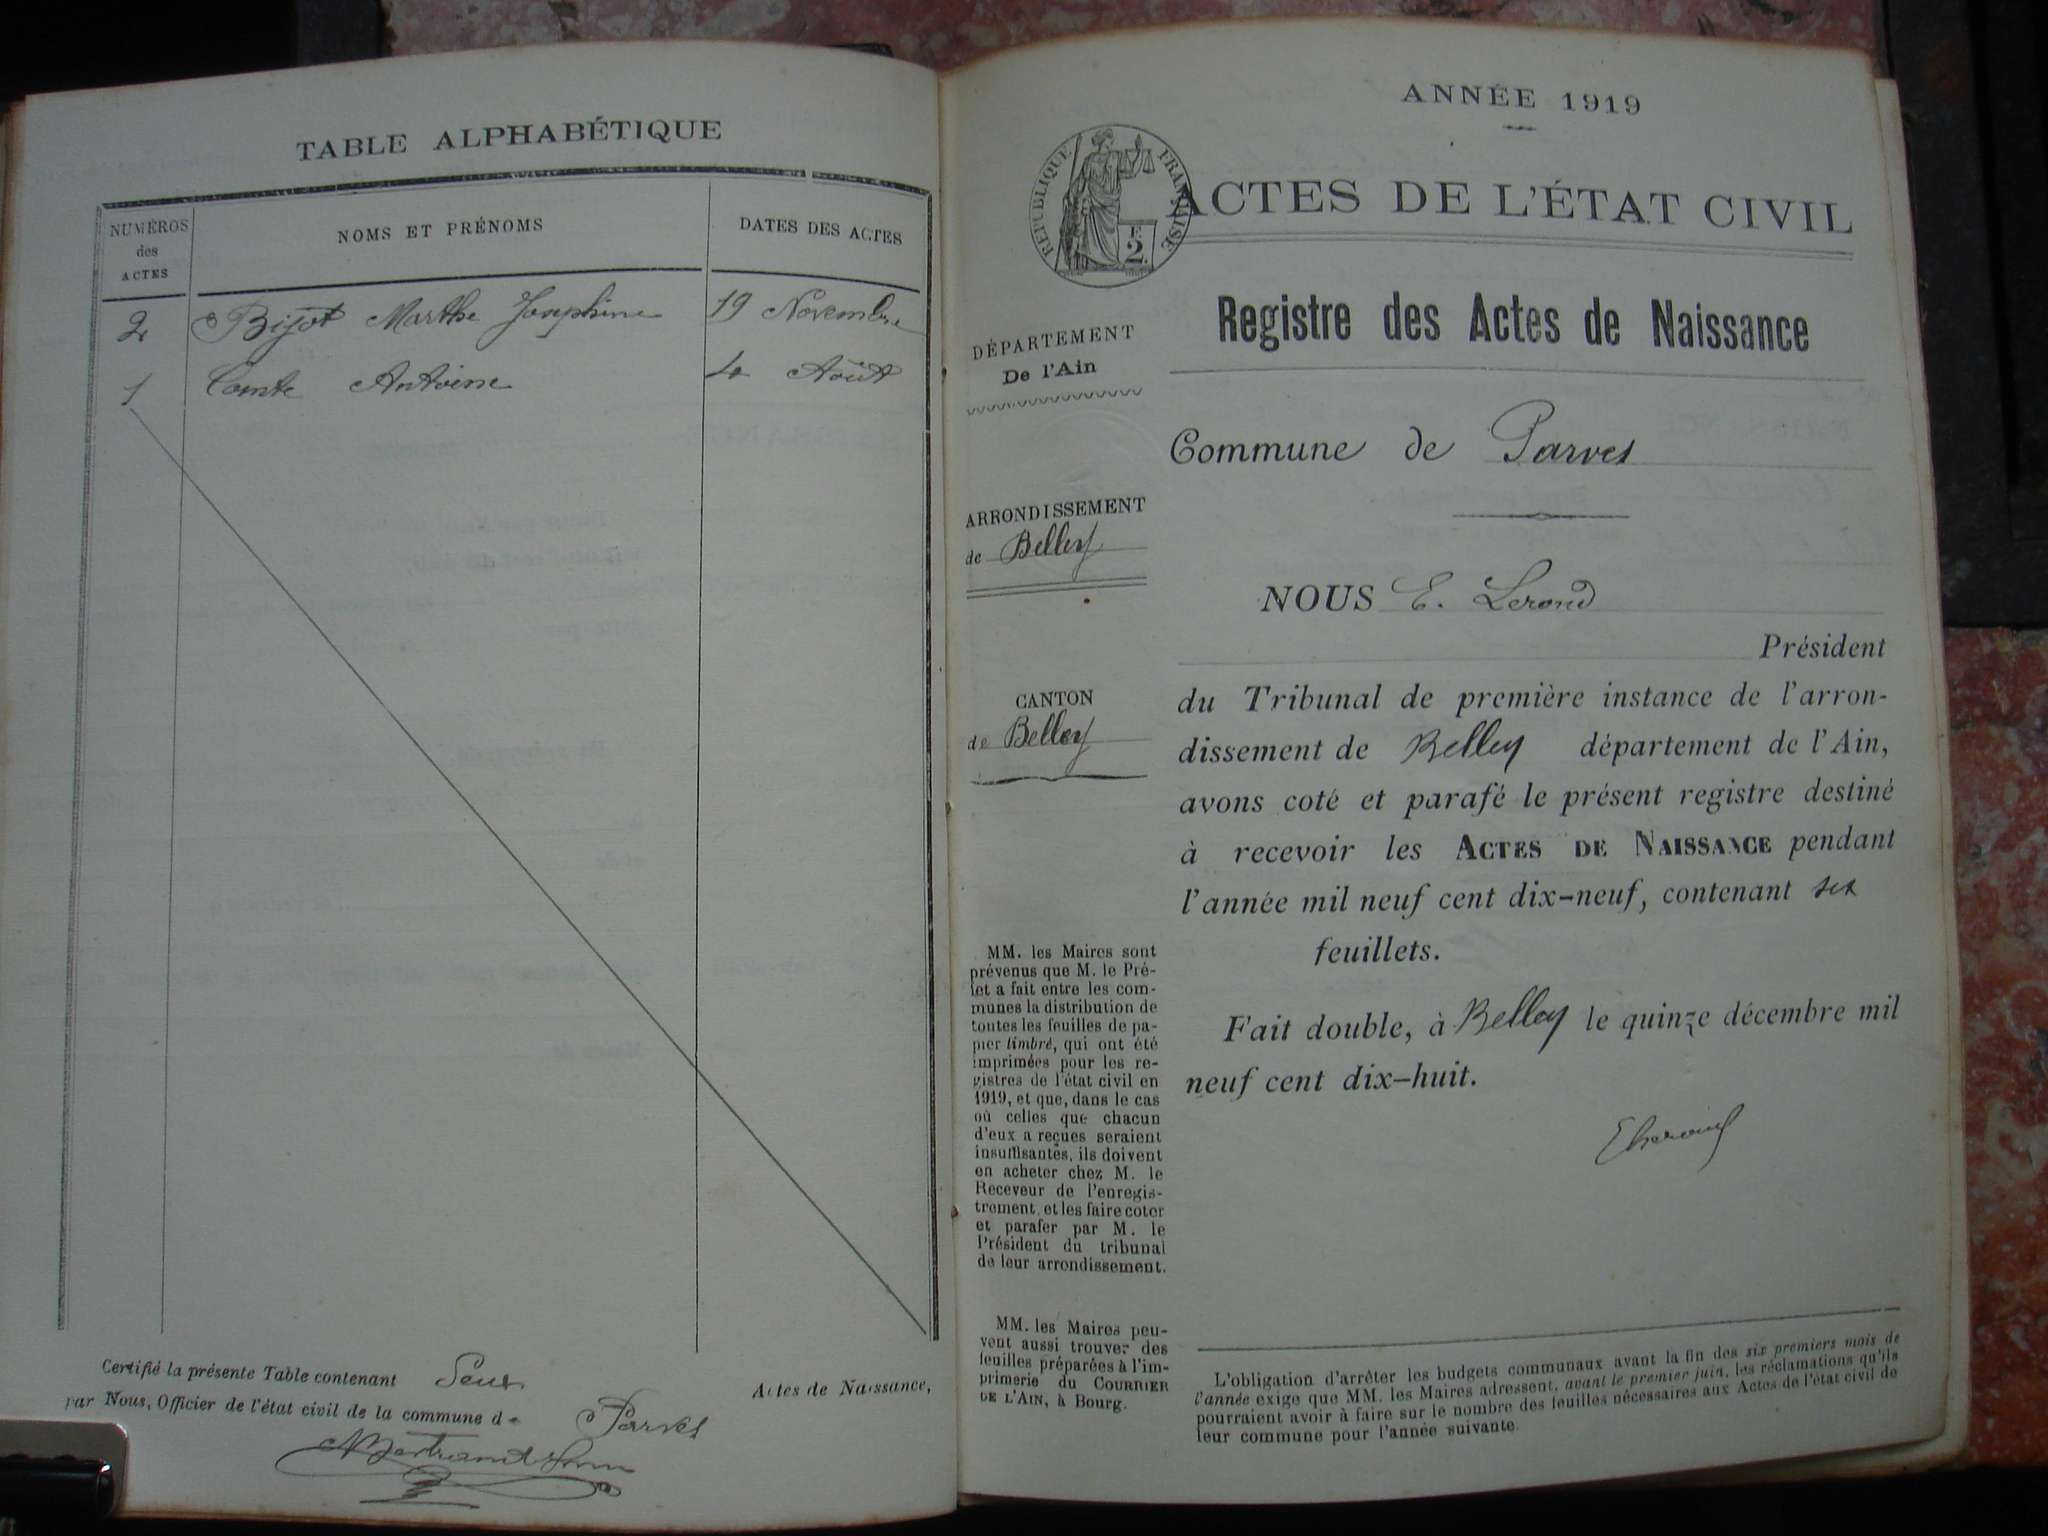 TABLE ALPHABÉTIQUE
NUMÉROS
des
ACTES
NOMS ET PRÉNOMS
DATES DES ACTES
2 Bijot Marthe Josephine 19 Novembre
1 Comte Antoine 4 Août
Certifié la présente Table contenant Deux Actes de Naissance,
par Nous, Officier de l'état civil de la commune de Parves
ANNÉE 1919
RÉPUBLIQUE FRANÇAISE
2
ACTES DE L'ÉTAT CIVIL
Registre des Actes de Naissance
DÉPARTEMENT
De l'Ain
Commune de Parves
ARRONDISSEMENT
de Belley
NOUS E. Lerond
Président
CANTON
de Belley
du Tribunal de première instance de l'arron-
dissement de Belley département de l'Ain,
avons coté et parafé le présent registre destiné
à recevoir les ACTES DE NAISSANCE pendant
l'année mil neuf cent dix-neuf, contenant six
feuillets.
Fait double, à Belley le quinze décembre mil
neuf cent dix-huit.
MM. les Maires sont
prévenus que M. le Pré-
fet a fait entre les com-
munes la distribution de
toutes les feuilles de pa-
pier timbré, qui ont été
imprimées pour les re-
gistres de l'état civil en
1919, et que, dans le cas
où celles que chacun
d'eux a reçues seraient
insuffisantes, ils doivent
en acheter chez M. le
Receveur de l'enregis-
trement, et les faire coter
et parafer par M. le
Président du tribunal
de leur arrondissement.
MM. les Maires peu-
vent aussi trouver des
feuilles préparées à l'im-
primerie du COURRIER
DE L'AIN, à Bourg.
L'obligation d'arrêter les budgets communaux avant la fin des six premiers mois de
l'année exige que MM. les Maires adressent, avant le premier juin, les réclamations qu'ils
pourraient avoir à faire sur le nombre des feuilles nécessaires aux Actes de l'état civil de
leur commune pour l'année suivante.